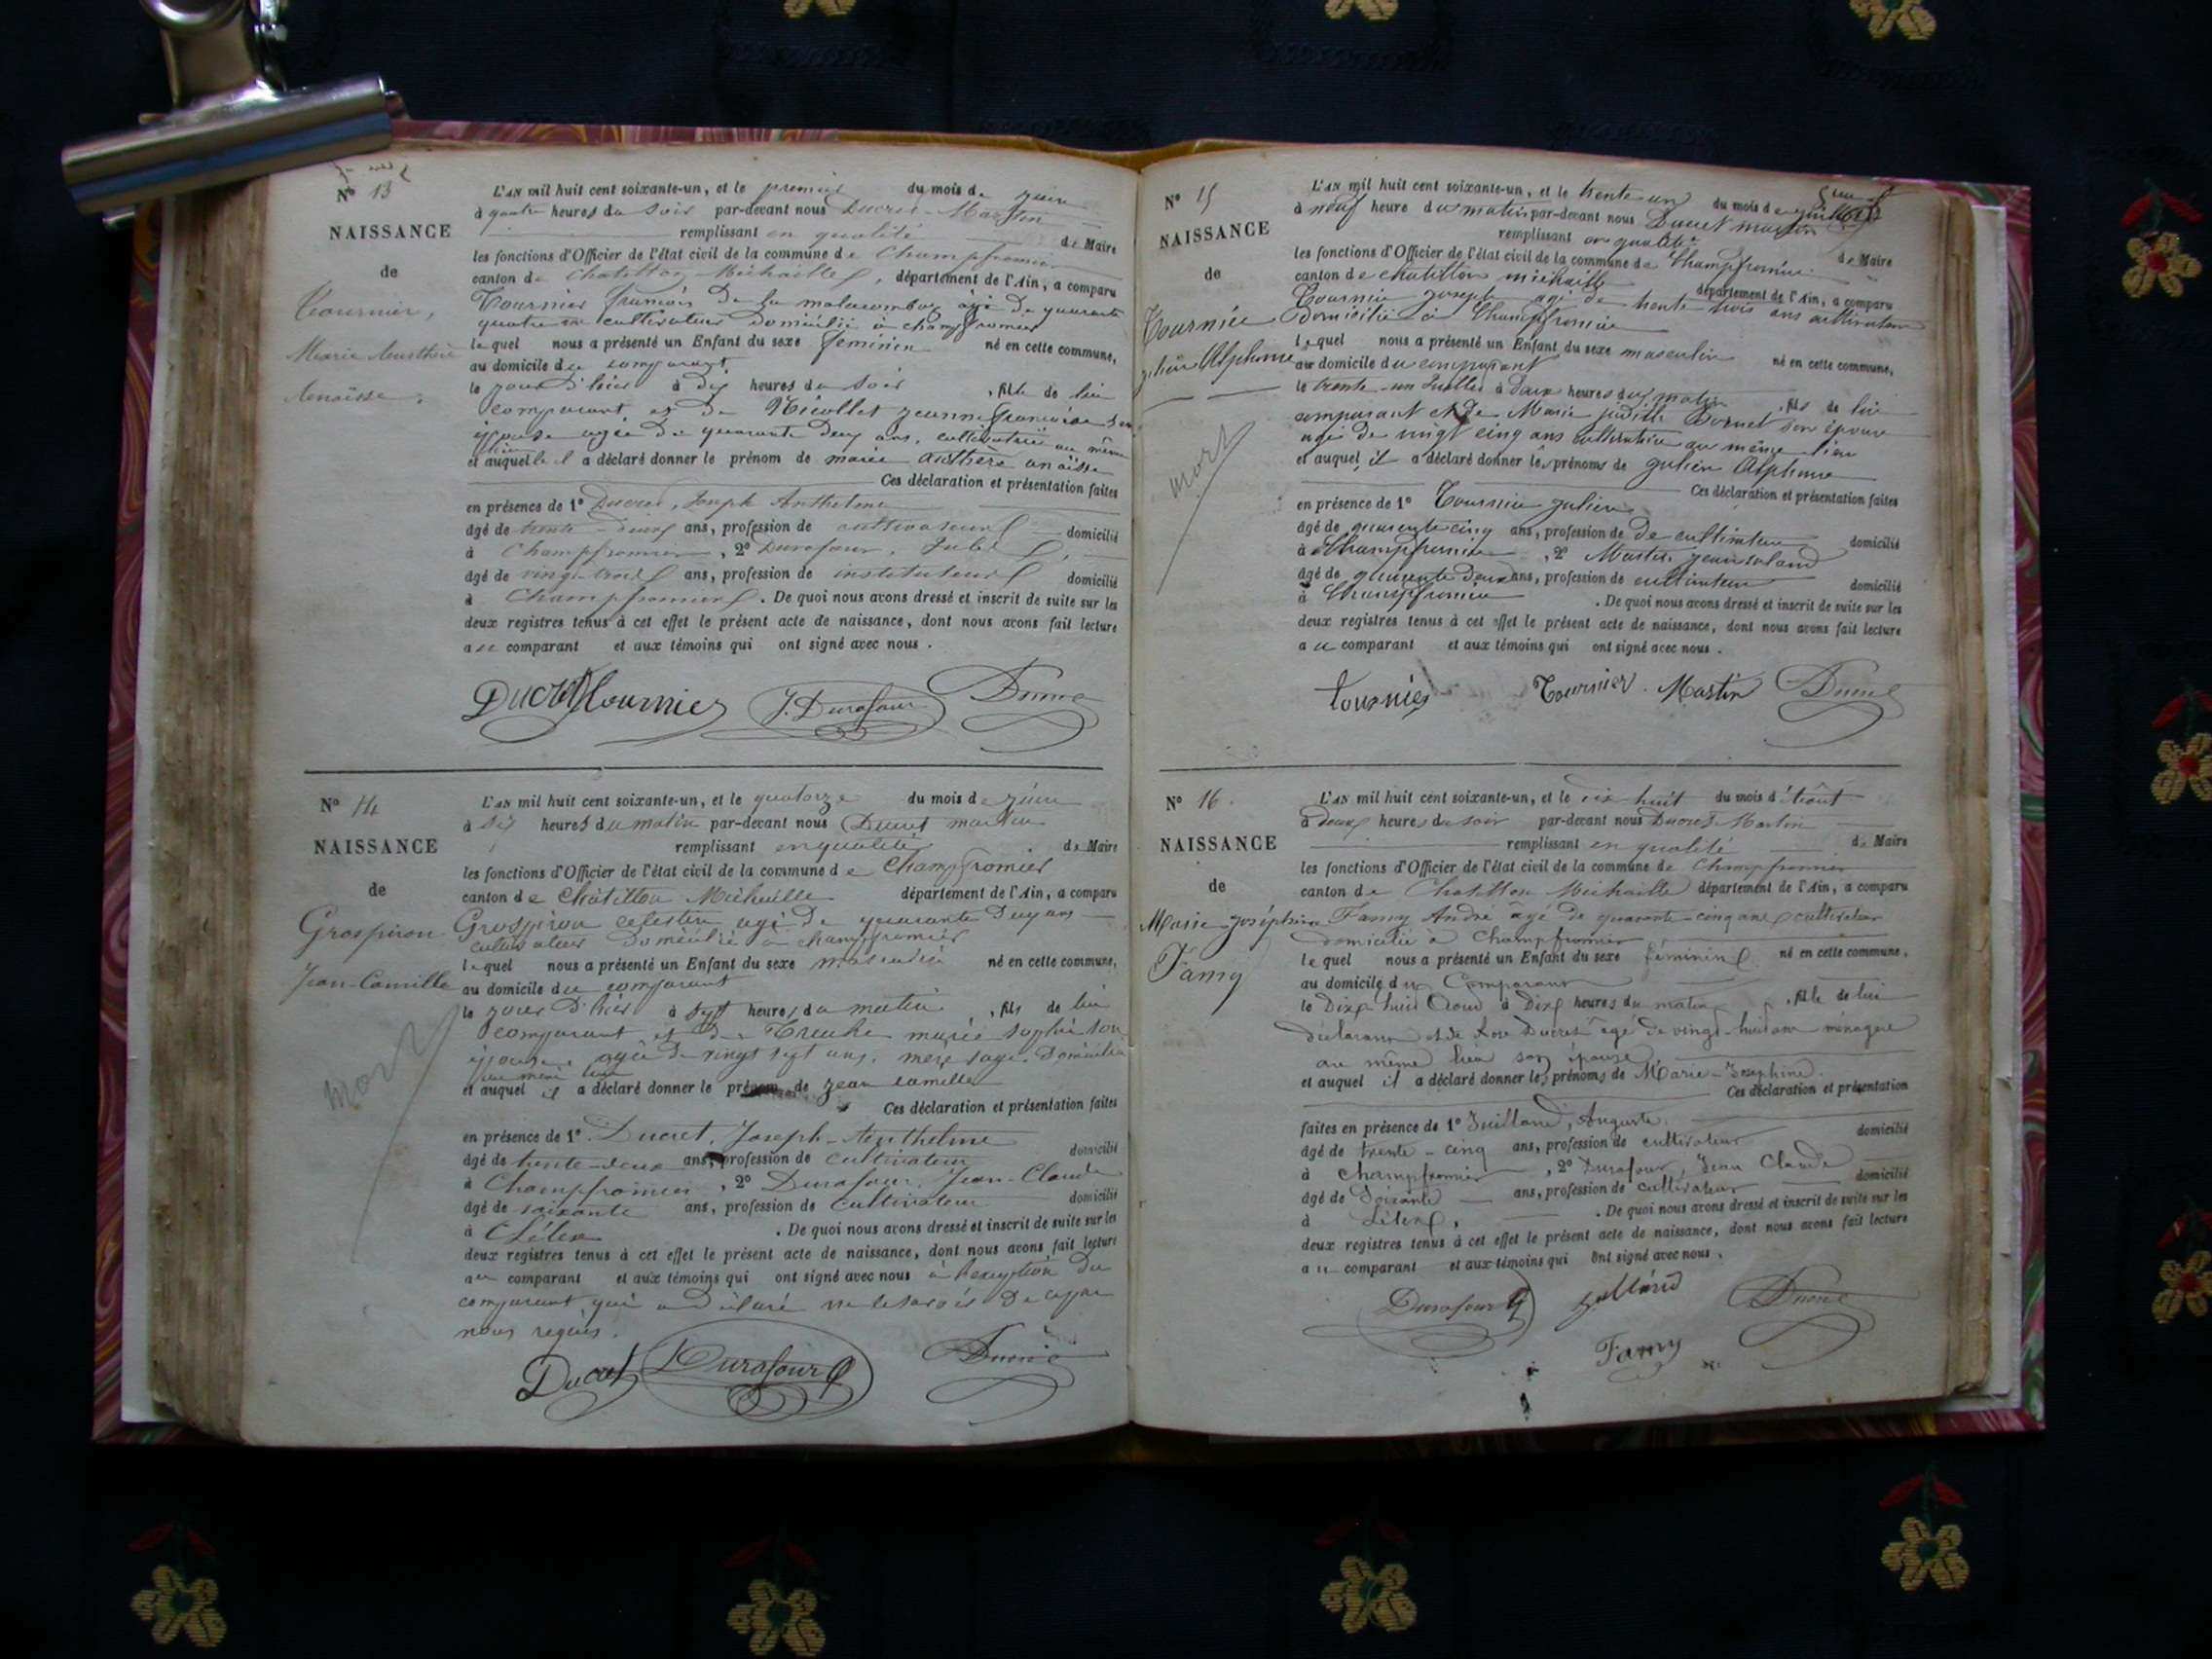 Nº 13
NAISSANCE
de
Tournier,
Marie Austhère
Anaïsse.
L'AN mil huit cent soixante-un, et le premier du mois de juin
à quatre heures du soir par-devant nous Ducret Martin
remplissant en qualité de Maire
les fonctions d'Officier de l'état civil de la commune de Champfromier
canton de Chatillon Michaille, département de l'Ain, a comparu
Tournier françois de la agé de quarante
quatre cultivateur domicilié à champfromier
lequel nous a présenté un Enfant du sexe féminin né en cette commune,
au domicile du comparant
le jour d'hier à dix heures du soir, fille de lui
comparant et de Nicollet jeanne françoise son
épouse agée de quarante deux ans, cultivatrice au même
lieu
et auquel le il a déclaré donner le prénom de marie austhère anaïsse
Ces déclaration et présentation faites
en présence de 1º Ducret, Joseph Anthelme
âgé de trente-deux ans, profession de cultivateur domicilié
à Champfromier, 2º Durafour, Jules
âgé de vingt-trois ans, profession de instituteur domicilié
à Champfromier. De quoi nous avons dressé et inscrit de suite sur les
deux registres tenus à cet effet le présent acte de naissance, dont nous avons fait lecture
au comparant et aux témoins qui ont signé avec nous.
Ducret Tournier J. Durafour Ducret
Nº 14
NAISSANCE
de
Grospiron
Jean-Camille
mort
L'AN mil huit cent soixante-un, et le quatorze du mois de juin
à six heures du matin par-devant nous Ducret martin
remplissant en qualité de Maire
les fonctions d'Officier de l'état civil de la commune de Champfromier
canton de Châtillon Michaille département de l'Ain, a comparu
Grospiron celestin agé de quarante deux ans
cultivateur domicilié à champfromier
lequel nous a présenté un Enfant du sexe masculin né en cette commune,
au domicile du comparant
le jour d'hier à sept heures du matin, fils de lui
comparant et de Treuhe marie sophie son
épouse agée de vingt sept ans, mère sage. Domicilié
au même lieu
et auquel il a déclaré donner le prénom de jean camille
Ces déclaration et présentation faites
en présence de 1º Ducret, Joseph-Anthelme
âgé de trente-deux ans, profession de cultivateur domicilié
à Champfromier, 2º Durafour, Jean-Claude
âgé de soixante ans, profession de cultivateur domicilié
à Lélex. De quoi nous avons dressé et inscrit de suite sur les
deux registres tenus à cet effet le présent acte de naissance, dont nous avons fait lecture
au comparant et aux témoins qui ont signé avec nous à l'exception du
comparant qui a déclaré ne le savoir de ce par
nous requis.
Ducret Durafour Ducret
Nº 15
NAISSANCE
de
Tournier
julien Alphonse
mort
L'AN mil huit cent soixante-un, et le trente-un du mois de juillet
à neuf heure du matin par-devant nous Ducret martin
remplissant en qualité de Maire
les fonctions d'Officier de l'état civil de la commune de Champfromier
canton de chatillon michaille département de l'Ain, a comparu
Tournier joseph agé de trente trois ans cultivateur
domicilié à Champfromier
lequel nous a présenté un Enfant du sexe masculin né en cette commune,
au domicile du comparant
le trente-un Juillet à deux heures du matin, fils de lui
comparant et de Marie judith Bornet son épouse
agée de vingt cinq ans cultivatrice au même lieu
et auquel il a déclaré donner les prénoms de julien Alphonse
Ces déclaration et présentation faites
en présence de 1º Tournier julien
âgé de quarante cinq ans, profession de de cultivateur domicilié
à Champfromier, 2º Martin jean roland
âgé de quarante deux ans, profession de cultivateur domicilié
à Champfromier. De quoi nous avons dressé et inscrit de suite sur les
deux registres tenus à cet effet le présent acte de naissance, dont nous avons fait lecture
au comparant et aux témoins qui ont signé avec nous.
tournier Tournier. Martin Ducret
Nº 16.
NAISSANCE
de
Marie-joséphine
Famy
L'AN mil huit cent soixante-un, et le dix huit du mois d'Août
à deux heures du soir par-devant nous Ducret Martin
remplissant en qualité de Maire
les fonctions d'Officier de l'état civil de la commune de Champfromier
canton de Chatillon Michaille département de l'Ain, a comparu
Famy André âgé de quarante-cinq ans cultivateur
domicilié à Champfromier
lequel nous a présenté un Enfant du sexe féminin né en cette commune,
au domicile du Comparant
le Dix-huit Aout à Dix heures du matin, fille de lui
déclarant et de Rose Ducret âgé de vingt-huit ans ménagère
au même lieu son épouse
et auquel il a déclaré donner les prénoms de Marie-Joséphine.
Ces déclaration et présentation
faites en présence de 1º Juilland, Auguste
âgé de trente-cinq ans, profession de cultivateur domicilié
à Champfromier, 2º Durafour, Jean Claude
âgé de Soixante ans, profession de cultivateur domicilié
à Lélex. De quoi nous avons dressé et inscrit de suite sur les
deux registres tenus à cet effet le présent acte de naissance, dont nous avons fait lecture
au comparant et aux témoins qui ont signé avec nous.
Durafour Julland Ducret
Famy